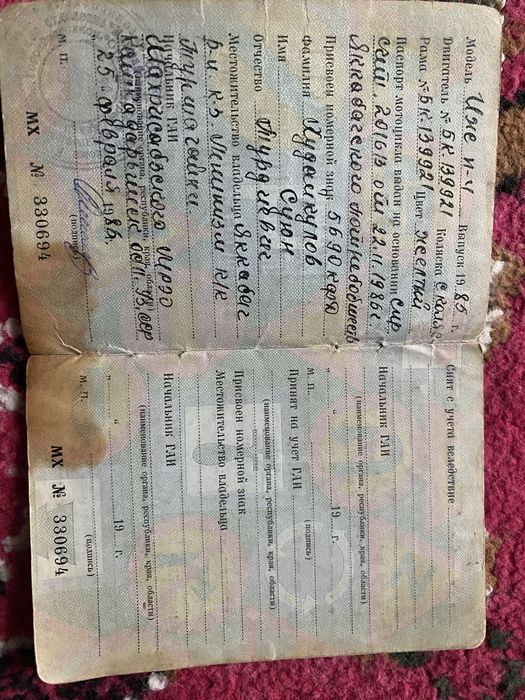 Модель Иж п-4 Выпуск 1985 г.
Двигатель № БК.139921 Коляска с коляс
Рама № БК.139921 Цвет желтый
Паспорт мотоцикла выдан на основании спр
2016/3 от 22.11.1986г.
Яккабагского
Присвоен номерной знак 5690 кдю
Фамилия Худойкулов
Имя Суюн
Отчество
Местожительство владельца Яккабаг
р.н. к.з Ленинизм к/к
Начальник ГАИ
Шахрисабзского
(наименование органа, республики, края, области)
25 февраля 1986.
М. П. (подпись)
МХ № 330694
Снят с учета вследствие
Начальник ГАИ
(наименование органа, республики, края, области)
„ “ 19 г.
М. П. (подпись)
Принят на учет ГАИ
(наименование органа, республики, края, области)
Присвоен номерной знак
Местожительство владельца
Начальник ГАИ
(наименование органа, республики, края, области)
„ “ 19 г.
М. П. (подпись)
МХ № 330694